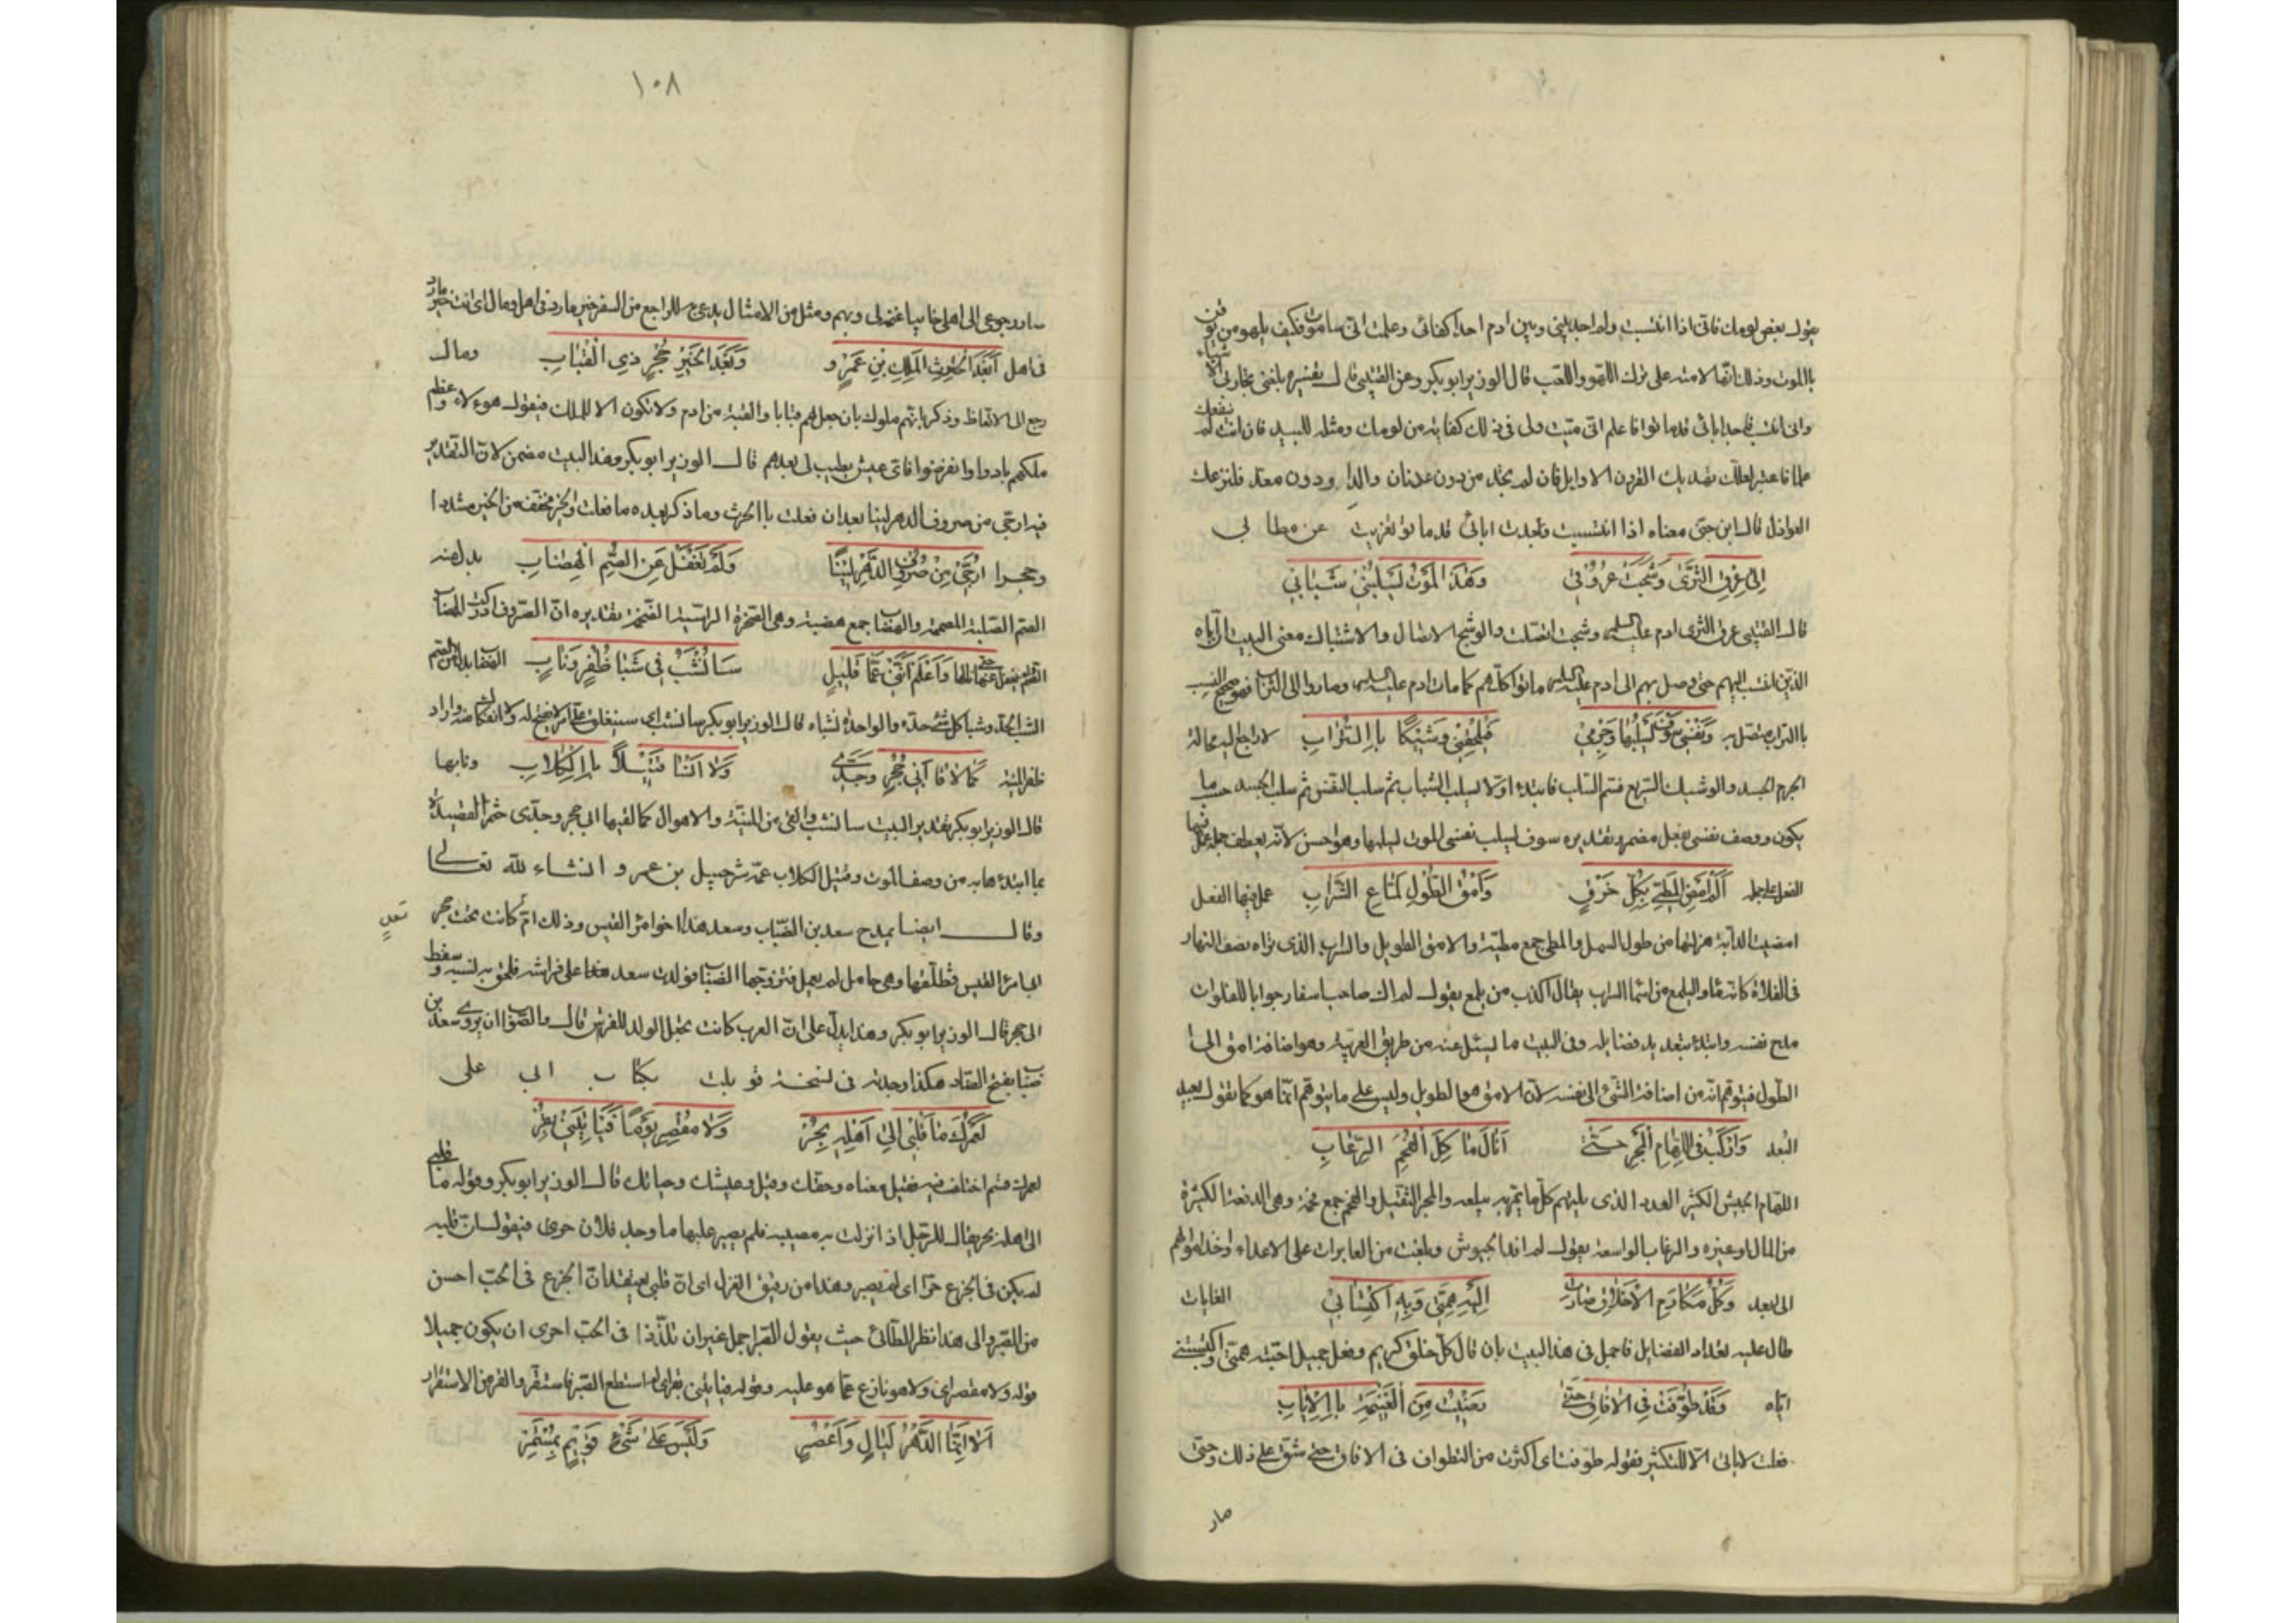 يقول بعض لومك فاني اذا انتسبت ولم اجد بيني وبين ادم احدا كفاني وعلمت اني ساموت فكيف يلهو من يوقن
باالموت وذلك انها لامته على ترك اللهو واللعب قال الوزير ابو بكر وعن القتيبي قال تفسيره يلغني تجاربي الاشياء
واني انتسب فاجد ابائي قد ماتوا فاعلم اني ميت ولي في ذلك كفاية من لومك ومثله للبيد فان انت لم ينفعك
علمك فاعتبر لعلك تهديك القرون الاوايل فان لم تجد من دون عدنان والدا ودون معد فلتزعك
العواذل قال ابن جني معناه اذا انتسبت وجدت ابائي قد ماتوا تعزيت عن مطالبي
اِلى عِرقِ الثَّرى وَشَجَت عُروقي وَهَذا المَوتُ يَسلُبُني شَبابي
قال القتيبي عرق الثرى ادم عليه السلم وشجت اتصلت والوشيج الاتصال والاشتباك معنى البيت ان اباه
الذين انتسب اليهم حتى وصل بهم الى ادم عليه السلم ماتوا كلهم كما مات ادم عليه السلم وصاروا الى الثرى فهو صحيح النسب
باالتراب متصل به وَنَفسي سَوفَ يَسلُبُها وَجِرمي فَيُلحِقُني وَشيكًا باالتُّرابِ لا راجع اليه محالة
الجرم الجسد والوشيك السريع قسم السلب فابتدء اولا بسلب الشباب ثم سلب النفس ثم سلب الجسد حسب ما
يكون ووصف نفسي بفعل مضمر وتقديره سوف يسلب نفسي الموت يسلبها وهو احسن لانه يعطف جملة عمل فيها
الفعل على جملة اَلَم اُنضِ المَطِيَّ بِكُلِّ خَرقٍ وَاَمقِ الطُّولِ لَمّاعِ السَّرابِ عمل فيها الفعل
امضيت الدابة هزلتها من طول السمل والمطي جمع مطية والامق الطويل والسراب الذي تراه نصف النهار
في الفلاة كانه ماء والبلمع من اسما السراب يقال اكذب من يلمع يقول لم اك صاحب اسفار جوابا للفلوات
مدح نفسه وابتدء بتعديد فضايله وفي البيت ما يسئل عنه من طريق العربية وهو اضافة امق الى
الطول فيتوهم انه من اضافة الشئ الى نفسه لان الامق هو الطويل وليس على ما يتوهم انما هو كما تقول بعيد
البعد وَاَركَبُ في اللُّهامِ المَجرِ حَتّى اَنالَ مَاكِلَ القُحَمِ الرِّغابِ
اللهام الجيش الكثير العدد الذي يلتهم كل ما يمر به يبلعه والمجر الثقيل والقحم جمع قحمة وهي الدفعة الكثيرة
من المال وغيره والرغاب الواسعة يقول لم اقد الجيوش وبلغت من الغايات على الاعداء واخذ اموالهم
الى ابعد وَكُلُّ مَكارِمِ الاَخلاقِ صارَت اِلَيهِ هِمَّتي وَبِهِ اكتِسابي الغايات
طال عليه تعداد الفضايل فاجمل في هذا البيت بان قال كل خلق كريم وفعل جميل احبته همتي واكتسبتني
اياه وَقَد طَوَّفتُ في الافاقِ حَتّى رَضيتُ مِنَ الغَنيمَةِ باالاِيابِ
فعلت لاياتي الا للتكثير فقوله طوفت اي اكثرت من التطواف في الافاق حتى شق علي ذلك وحتى
صار
١٠٨
صار رجوعي الى اهلي خائبا غنيمة لي وبهم ومثل من الامثال يدعي به للراجع من السفر خير ما رد في اهل ومال اي انت خير ما رد
في اهل اَبَعدَ الحارِثِ المَلِكِ بنِ عَمرٍو وَبَعدَ الخَيرِ حُجرٍ ذي القِبابِ ومال
رجع الى الاتعاظ وذكر بانهم ملوك بان جعل لهم قبابا والقبة من ادم ولا تكون الا للملك فيقول هوءلاء وعظم
ملكهم بادوا وانقرضوا فاي عيش يطيب لي بعدهم قال الوزير ابو بكر وهذا البيت مضمن لان التقدير
فيه ارجي من صروف الدهر لينا بعد ان فعلت باالحرث وما ذكر بعده ما فعلت والخير مخفف من الخير مشددا
وحجرا اُرَجّي مِن صُروفِ الدَّهرِ لينًا وَلَم تَغفُل عَنِ الصُّمِّ الهِضابِ بدل منه
الصم الصلبة المصمتة والهضاب جمع هضبة وهي الصخرة الراسية الضخمة تقديره ان الصروف ادركت الهضاب
الصم لم تغفل عنها حتى نالها وَاَعلَمُ اَنَّني عَمّا قَليلٍ سَاَنشَبُ في شَبا ظُفرٍ وَنابِ الهضاب بدل من الصم
الشبا الحد وشبا كل شئ حده والواحدة شباه قال الوزير ابو بكر سانشب اي سينغلق علي امر لا يفتح له ولا انفكاك منه واراد
ظفر المنية كَما لاقا اَبي حُجرٌ وَجَدّي وَلا اَنسا قَتيلاً باالكِلابِ ونابها
قال الوزير ابو بكر تقدير البيت سانشب والقى من المنية والاهوال كما لقيها ابي حجر وجدي ختم القصيدة
بما ابتدء هابه من وصف الموت وقتيل الكلاب عمه شرحبيل بن عمرو انشاء لله تعالى
وقال ايضا يمدح سعد بن الضباب وسعد هذا اخو امرئ القيس وذلك ان ام كانت تحت حجر
ابي امرئ القيس فطلقها وهي حامل لم يعلم فتزوجها الضباب فولدت سعد هذا على فراشه فلحق به نسبه وسقط
الى حجر قال الوزير ابو بكر وهذا يدل على ان العرب كانت تجعل الولد للفرش قال والصواب ان يروى سعد بن
ضباب بفتح الضاد هكذا وجدته في نسخة قوبلت بكتاب ابي على
لَعَمرُكَ ما قَلبي اِلى اَهلِهِ بِحُرّ وَلا مُقصِرٍ يَومًا فَيَاتِيَني بِقُرّ
لعمرك قسم اختلف فيه فقيل معناه وحقك وقيل وعيشك وحياتك قال الوزير ابو بكر وقوله ما قلبي
الى اهله بحر يقال للرجل اذا نزلت به مصيبة فلم يصبر عليها ما وجد فلان حرى فيقول ان قلبه
لم يكن في الجزع حرا اي لم يصبر وهذا من رقيق الغزل اي ان قلبي يعتقد ان الجزع في الحب احسن
من الصبر والى هذا نظر الطائي حيث يقول الصبر اجمل غير ان تلذذا في الحب احرى ان يكون جميلا
قوله ولا مقصر اي ولا هو نازع عما هو عليه وقوله فياتيني بقر اي لم استطع الصبر فاستقر والقر من الاستقرار
اَلا اِنَّما الدَّهرُ لَيالٍ وَاَعصُرٍ وَلَيسَ عَلى شَئٍ قَويمٍ بِمُستَمِرّ